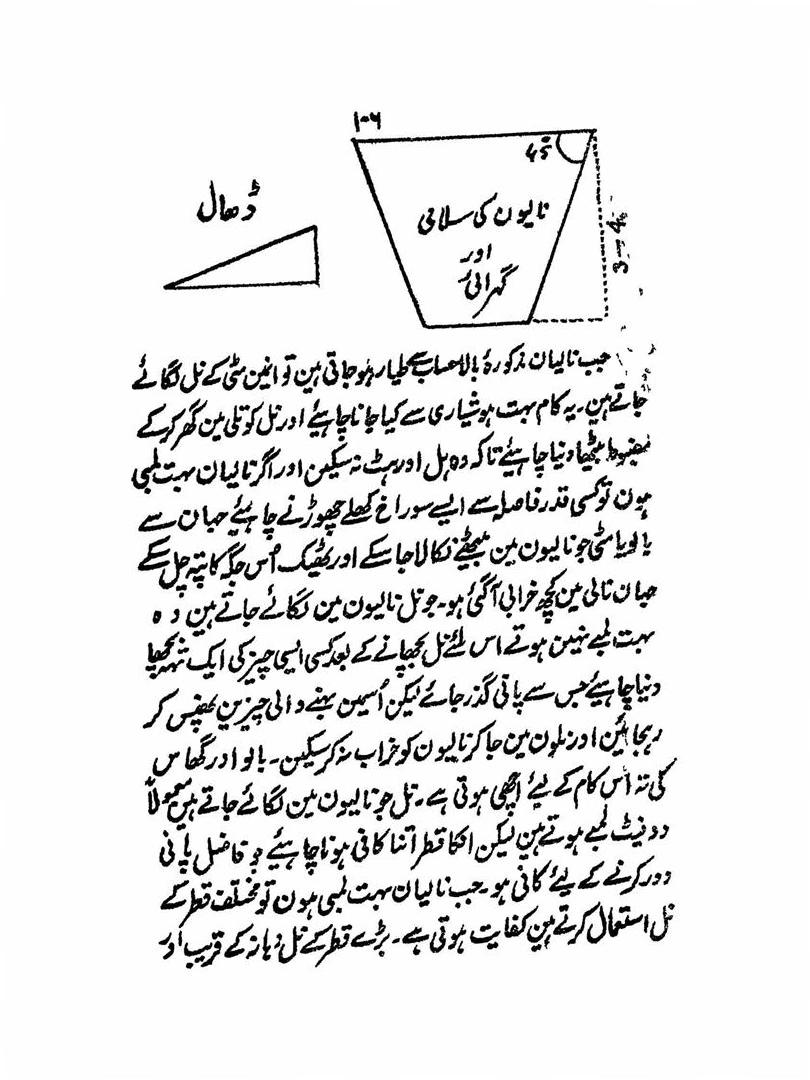 ۱۰۶
45°
ڈھال
نالیون کی سلامی
اور
گہرائی
3-4
جب نالیان مذکورۂ بالا حساب سے طیار ہوجاتی ہین تو انین مٹی کے نل لگائے
جاتے ہین۔ یہ کام بہت ہوشیاری سے کیا جانا چاہیئے اور نل کو تلی مین گھر کر کے
مضبوط بٹھا دنیا چاہیئے تاکہ وہ ہل اور ہٹ نہ سیکھن اور اگر نالیان بہت لمبی
ہون تو کسی قدر فاصلہ سے ایسے سوراخ کھلے چھوڑنے چاہئیے جہان سے
بالو یا مٹی جو نالیون مین بیٹھے نکالا جا سکے اور ٹھیک اُس جگہ کا پتہ چل سکے
جہان نالی مین کچھ خرابی آگئی ہو۔ جو نل نالیون مین لگائے جاتے ہین وہ
بہت لمبے نہین ہوتے اس لئے نل بچھانے کے بعد کسی ایسی چیز کی ایک تہہ بچھا
دنیا چاہیئے جس سے پانی گذر جائے لیکن اُسمین بہنے والی چیزین پھنس کر
رہجائین اور نلون مین جا کر نالیون کو خراب نہ کر سکین۔ بالو اور گھاس
کی تہ اس کام کے لیئے اچھی ہوتی ہے۔ نل جو نالیون مین لگائے جاتے ہین معمولاً
دو فیٹ لمبے ہوتے ہین لیکن انکا قطر اتنا کافی ہونا چاہیئے جو فاضل پانی
دور کرنے کے لیئے کافی ہو۔ جب نالیان بہت لمبی ہون تو مختلف قطر کے
نل استعمال کرتے ہین کفایت ہوتی ہے۔ بڑے قطر کے نل دہانہ کے قریب اور